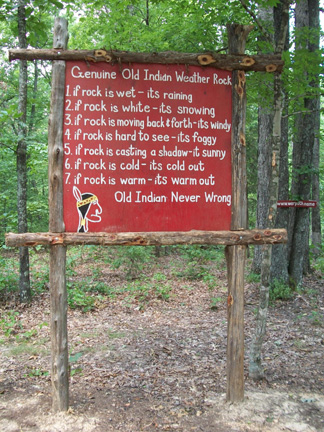 Genuine Old Indian Weather Rock
1. if rock is wet-its raining
2. if rock is white-its snowing
3. if rock is moving back & forth-its windy
4. if rock is hard to see-its foggy
5. if rock is casting a shadow-it sunny
6. if rock is cold-its cold out
7. if rock is warm-its warm out
Old Indian Never Wrong